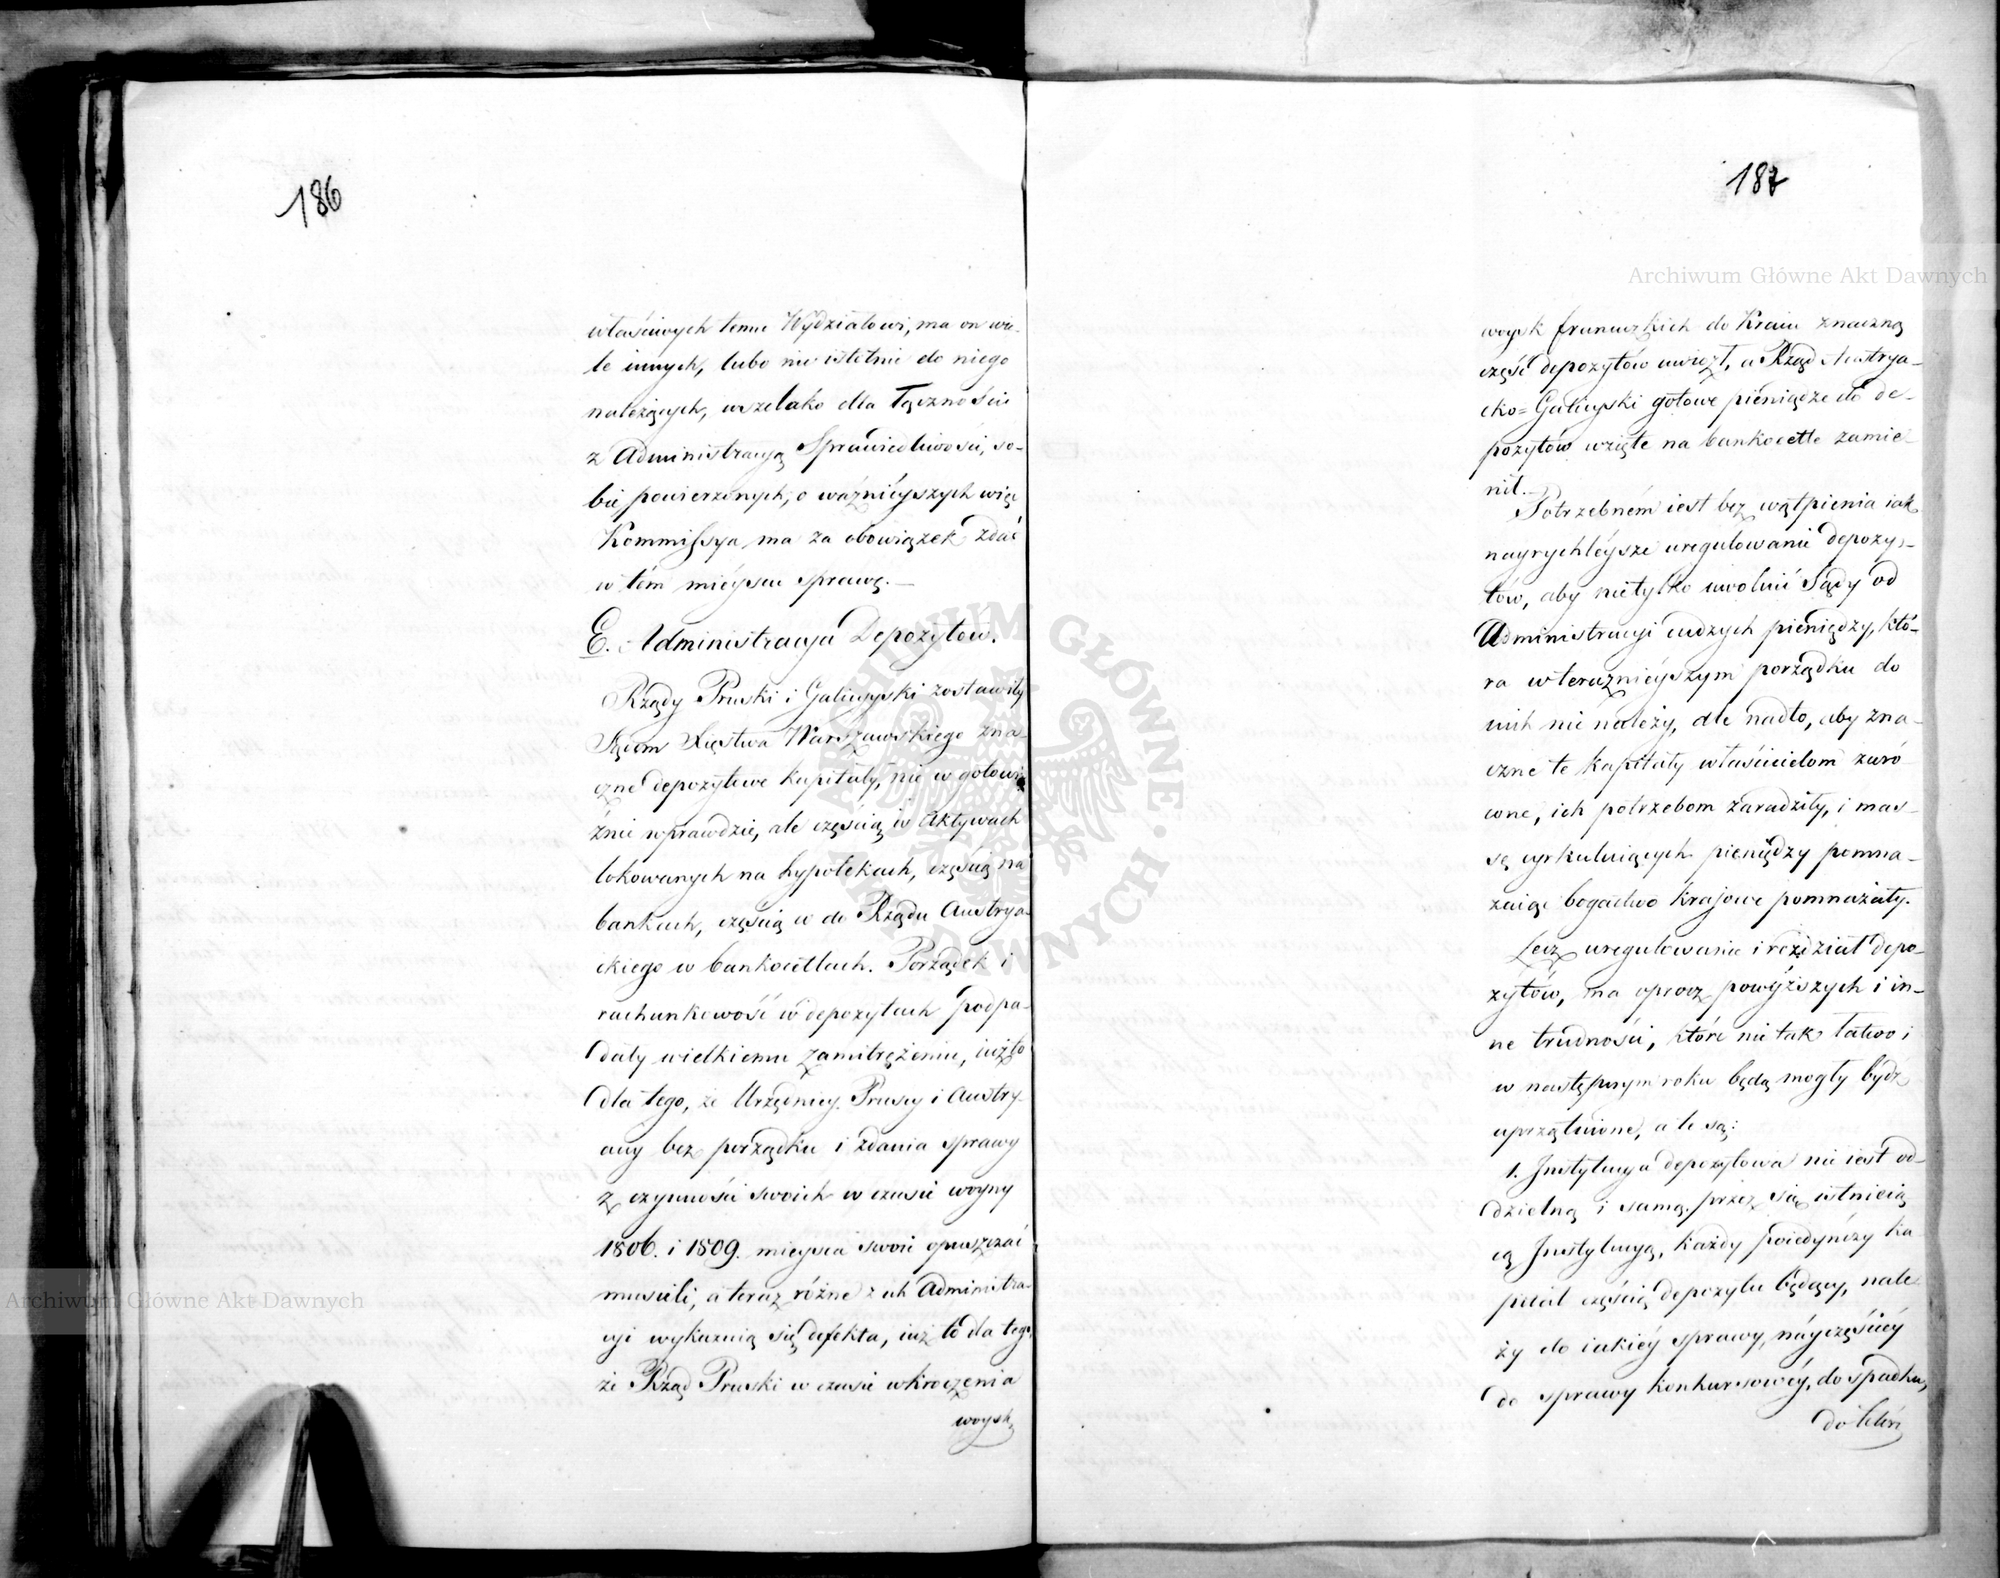 186
właściwych temu Wydziałowi, ma on wie-
le innych, lubo nie istotnie do niego
należących, wszelako dla łączności
z Administracyą Sprawiedliwości, so-
bie powierzonych; o ważnieyszych więc
Kommissya ma za obowiązek zdać
w tém mieyscu sprawę.—
E. Administracya Depozytow.
Rządy Pruski i Galicyyski zostawiły
Sądom Xięstwa Warszawskiego zna-
czne depozytowe kapitały, nie w gotowi-
źnie wprawdzie, ale częścią w Aktywach
lokowanych na hypotekach, częścią na
bankach, częścią w do Rządu Austrya-
ckiego w bankocetlach. Porządek i
rachunkowość w depozytach podpa-
dały wielkiemu zamitrężeniu, iuż to
dla tego, że Urzędnicy Pruscy i Austry-
accy bez porządku i zdania sprawy
z czynności swoich w czasie woyny
1806. i 1809. mieysca swoie opuszczać
musieli, a teraz różne z ich Administra-
cyi wykazuią się defekta, iuż to dla tego,
że Rząd Pruski w czasie wkroczenia
woysk
187
woysk francuzkich do Kraiu znaczną
część depozytów uwiózł, a Rząd Austrya-
cko=Galicyski gotowe pieniądze do de-
pozytów wzięte na bankocetle zamie-
nił.—
Potrzebném iest bez wątpienia iak
nayrychléysze uregulowanie depozy-
tów, aby nietylko uwolnić Sądy od
Administracyi cudzych pieniędzy, któ-
ra w teraznieyszym porządku do
nich nie należy, ale nadto, aby zna-
czne te kapitały właścicielom zwró-
cone, ich potrzebom zaradziły, i mas-
sę cyrkuluiących pieniędzy pomna-
żaiąc bogactwo krajowe pomnażały.
Lecz uregulowanie i rozdział depo-
zytów, ma oprocz powyższych i in-
ne trudności, które nie tak łatwo i
w następnym roku będą mogły bydź
uprzątnione, a te są:
1. Instytucya depozytowa nie iest od-
dzielną i samą przez się istnieią
cą Instytucyą, każdy poiedynczy ka
pitał częścią depozytu będący, nale
ży do iakiéy sprawy, nayczęściéy
do sprawy konkursowéy, do spadku,